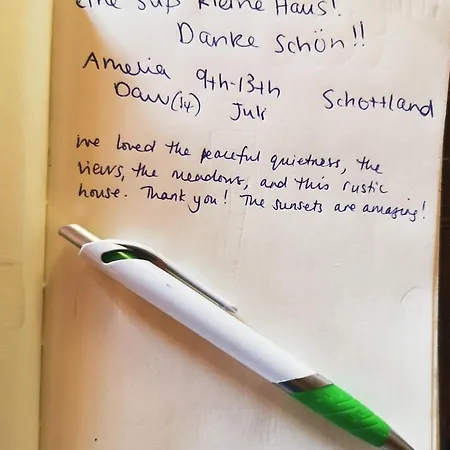 eine süß kleine Haus!
Danke Schön!!
Amelia 9th-13th Schottland
(14) Juli
we loved the peaceful quietness, the
views, the meadows, and this rustic
house. Thank you! The sunsets are amazing!